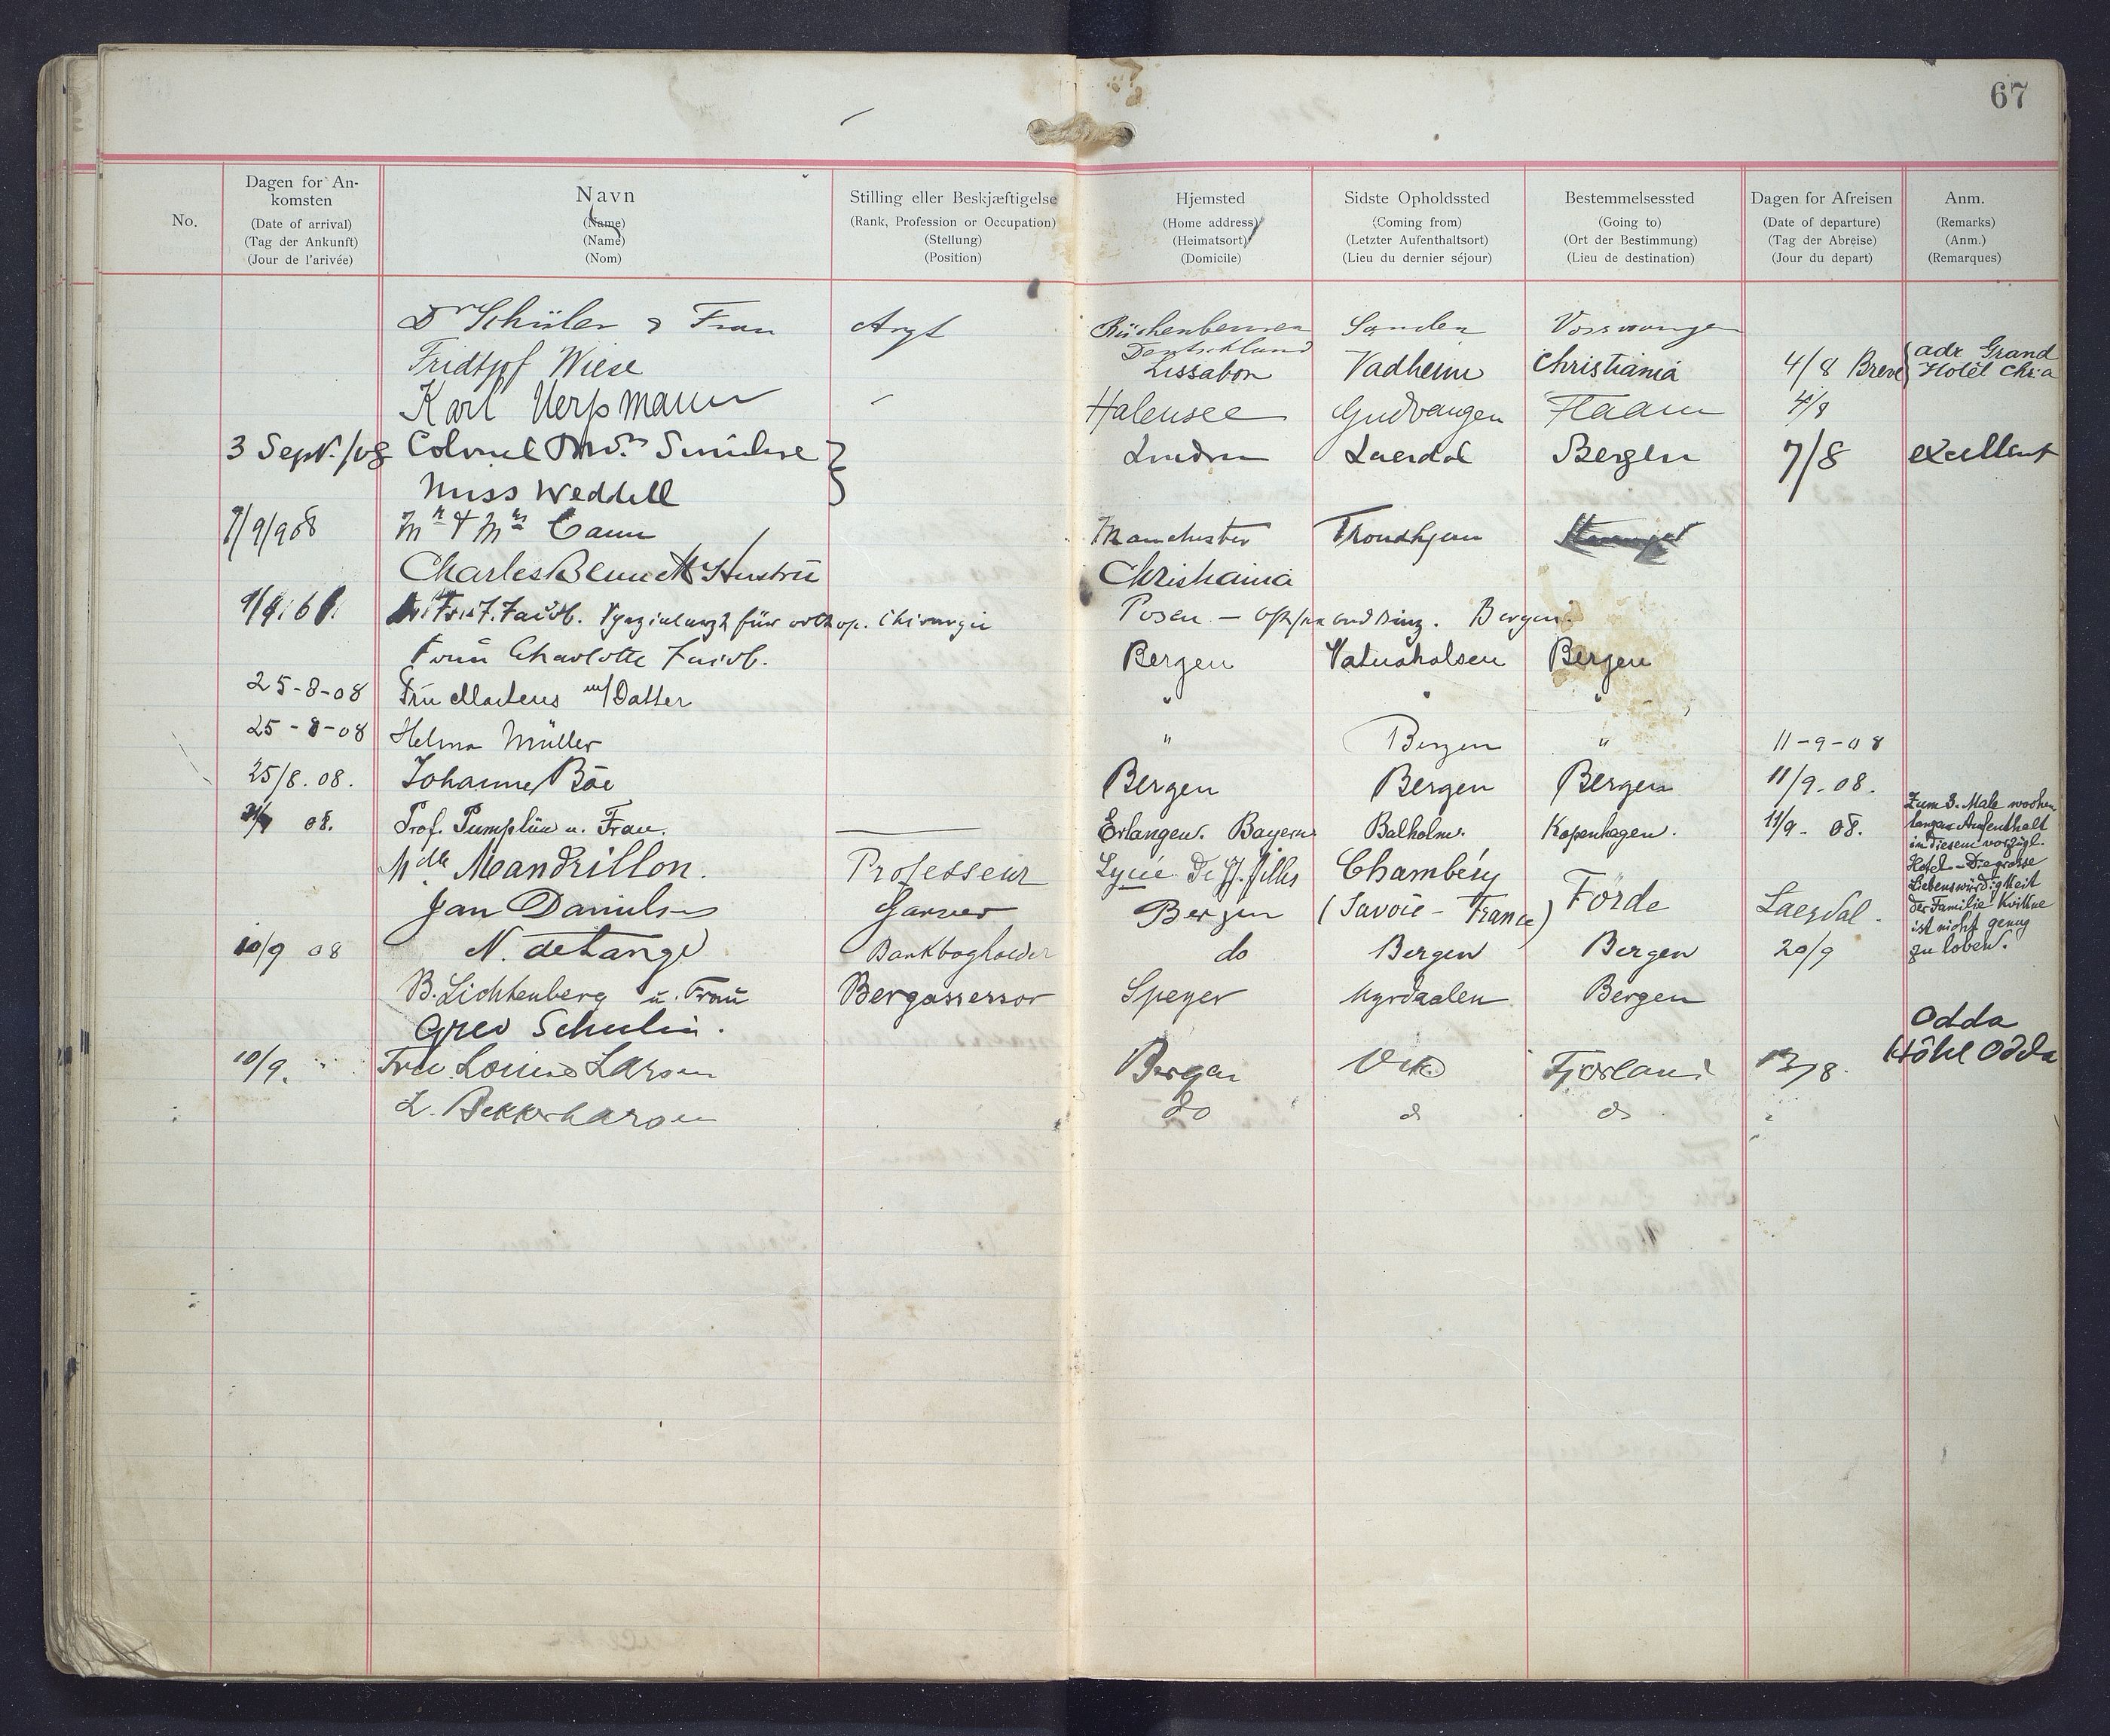 67
No.
Dagen for An-
komsten
(Date of arrival)
(Tag der Ankunft)
(Jour de l'arivée)
Navn
(Name)
(Name)
(Nom)
Stilling eller Beskjæftigelse
(Rank, Profession or Occupation)
(Stellung)
(Position)
Hjemsted
(Home address)
(Heimatsort)
(Domicile)
Sidste Opholdssted
(Coming from)
(Letzter Aufenthaltsort)
(Lieu du dernier séjour)
Bestemmelsessted
(Going to)
(Ort der Bestimmung)
(Lieu de destination)
Dagen for Afreisen
(Date of departure)
(Tag der Abreise)
(Jour du depart)
Anm.
(Remarks)
(Anm.)
(Remarques)
Dr Schüler & Frau Arzt Sanden Vossvangen
Deutschland
Fridtjof Wiese Lissabon Vadheim Christiania 4/8 Breve adr Grand
Hotel Chr:a
Karl Halensee Gudvangen Flaam 4/8
3 Sept./08 Colonel London Laerdal Bergen 7/8 excellent
Miss Weddell
7/9/908 Mr & Mrs Cann Manchester Trondhjem
Charles Bennett & Hustru Christiania
für orthop. Chirurgie Posen Bergen
Frau Charlotte Bergen Vatnahalsen Bergen
25-8-08 Fru Martens m/Datter " " "
25-8-08 Helma Müller " Bergen " 11-9-08
25/8. 08. Johanne Böe Bergen Bergen Bergen 11/9. 08.
08. Prof. Pumplün u. Frau. Erlangen. Bayern Balholm. Kopenhagen. 11/9. 08. Zum 3. Male wochen
langen Aufenthalt
in diesem vorzügl.
Hotel – Die grosse
Liebenswürdigkeit
der Familie Kvikne
ist nicht genug
zu loben.
Mdlle Mandrillon. Professeur Lycée de J. filles Chambéry
(Savoie - France) Förde Laerdal.
Jan Danielsen Garver Bergen
10/9 08 N. de Lange Bankbogholder do Bergen Bergen 20/9
B. Lichtenberg u. Frau Bergassessor Speyer Myrdalen Bergen
Grev Schulin. Odda
Hôtel Odda
10/9. Fru Louise Larsen Bergen Vik Fjærland 13/8.
L. Bekker Larsen do do do "